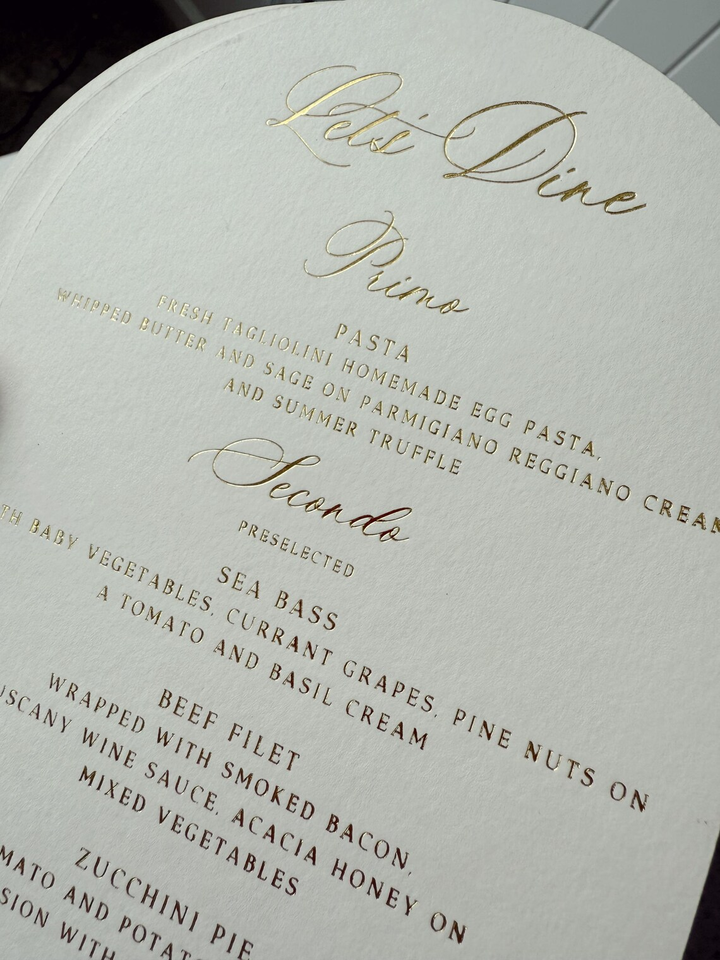 Let's Dine
Primo
PASTA
FRESH TAGLIOLINI HOMEMADE EGG PASTA,
WHIPPED BUTTER AND SAGE ON PARMIGIANO REGGIANO CREAM
AND SUMMER TRUFFLE
Secondo
PRESELECTED
SEA BASS
BABY VEGETABLES, CURRANT GRAPES, PINE NUTS ON
A TOMATO AND BASIL CREAM
BEEF FILET
WRAPPED WITH SMOKED BACON,
WINE SAUCE, ACACIA HONEY ON
MIXED VEGETABLES
ZUCCHINI PIE
AND
WITH